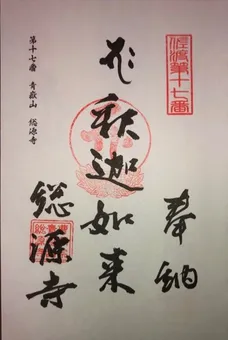 第十七番
奉納
釈迦如来
総源寺
第十七番 青嶽山 総源寺